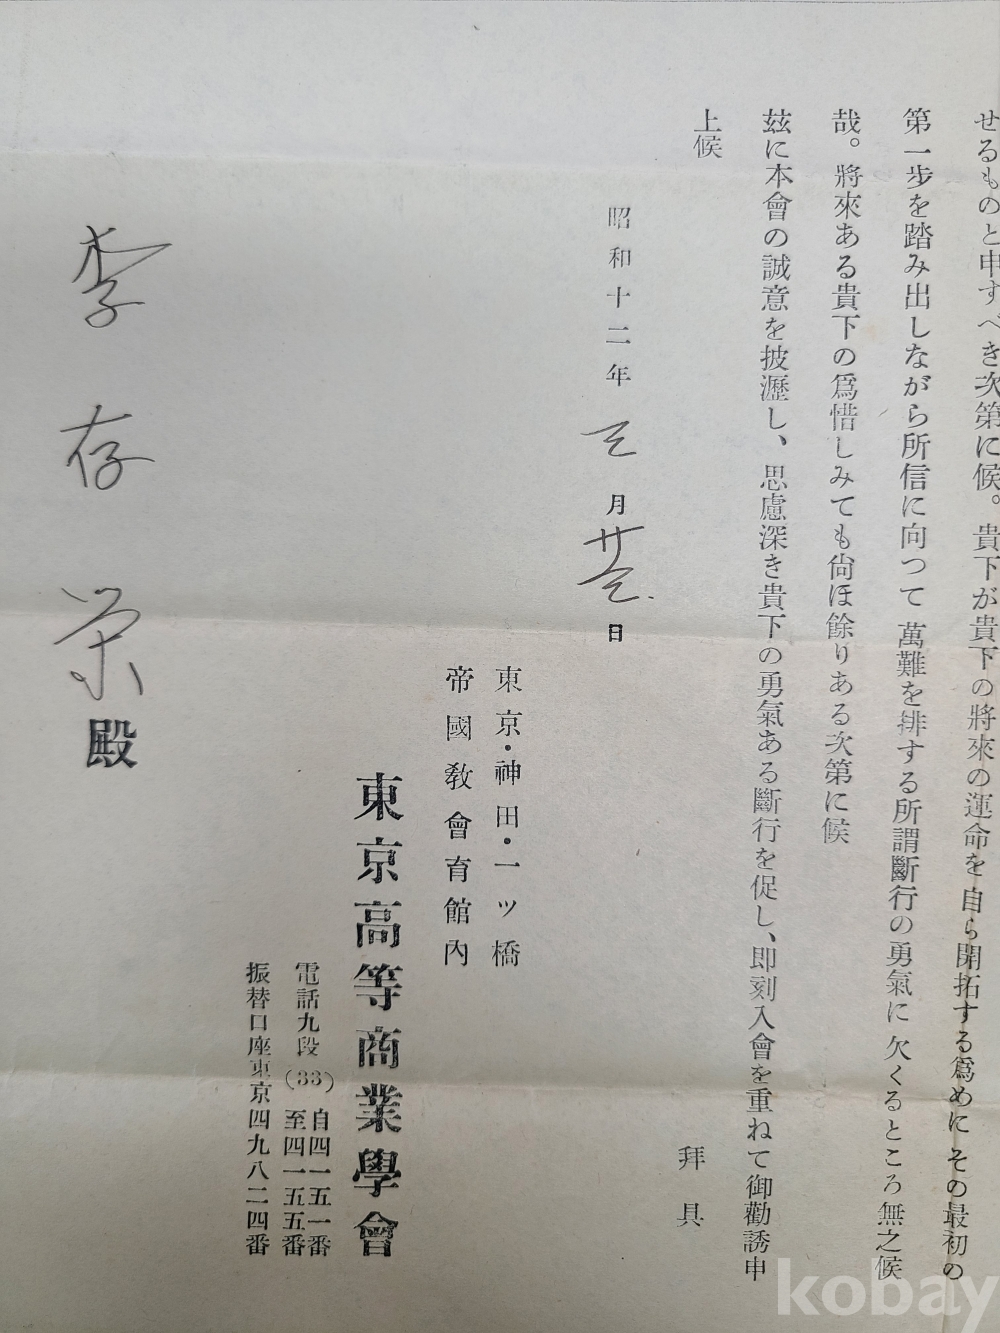 せるものと申すべき次第に候。貴下が貴下の將來の運命を自ら開拓する爲めにその最初の
第一步を踏み出しながら所信に向つて萬難を排する所謂斷行の勇氣に欠くるところ無之候
哉。將來ある貴下の爲惜しみても尙ほ餘りある次第に候
玆に本會の誠意を披瀝し、思慮深き貴下の勇氣ある斷行を促し、即刻入會を重ねて御勸誘申
上候
拜具
昭和十二年三月廿三日
東京・神田・一ツ橋
帝國敎會育館內
東京高等商業學會
電話九段(33)自四一五一番
至四一五五番
振替口座東京四九八二四番
李存榮殿
kobay